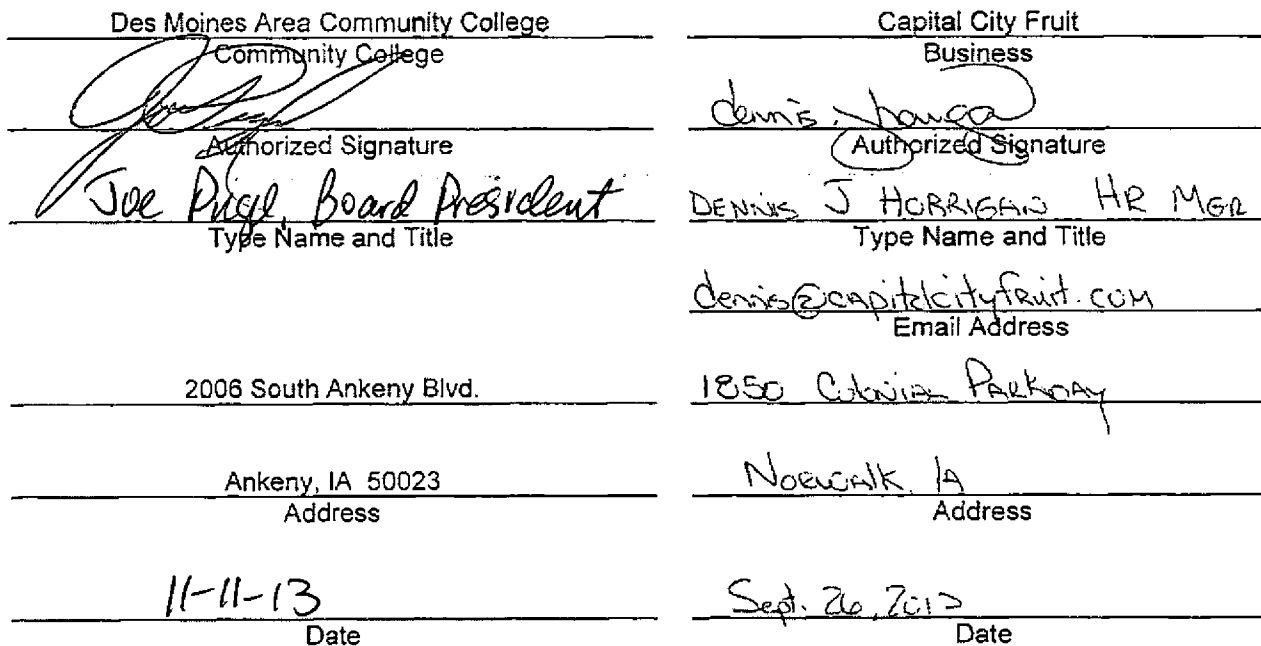 Des Moines Area Community College
Community College
Authorized Signature
Joe Pugel, Board President
Type Name and Title
2006 South Ankeny Blvd.
Ankeny, IA 50023
Address
11-11-13
Date
Capital City Fruit
Business
dennis j
Authorized Signature
DENNIS J HORRIGAN HR MGR
Type Name and Title
dennis@capitalcityfruit.com
Email Address
1850 Colonial Parkway
Norwalk, IA
Address
Sept. 26,
Date